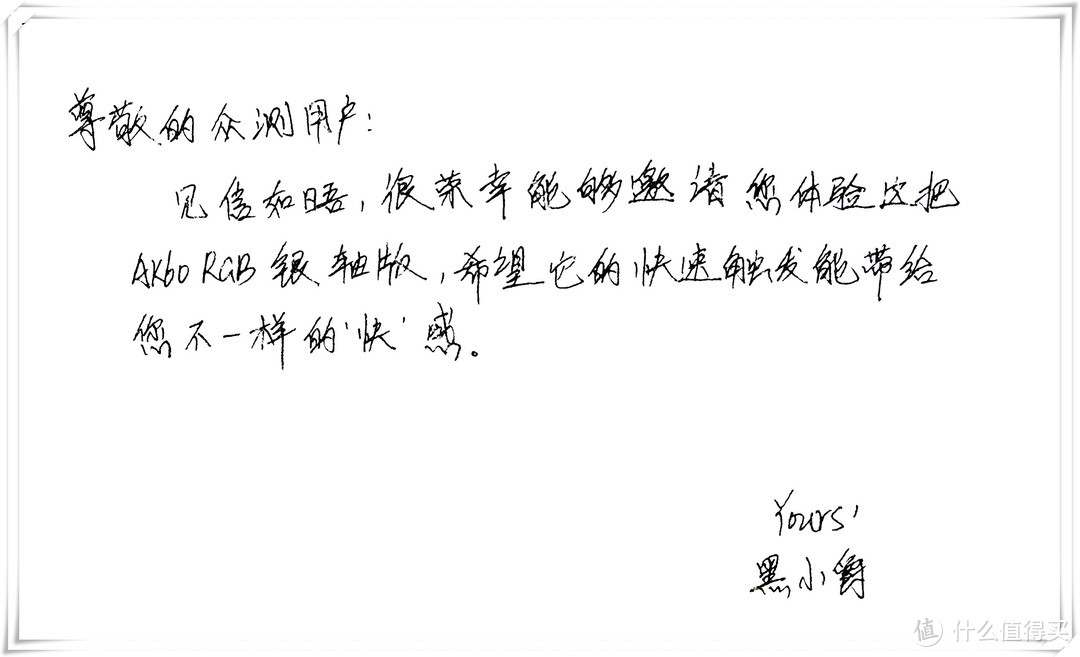 尊敬的众测用户:
见信如晤,很荣幸能够邀请您体验这把
AK60 RGB 银轴版,希望它的快速触发能带给
您不一样的'快'感。
Yours,
黑小爵
值 什么值得买